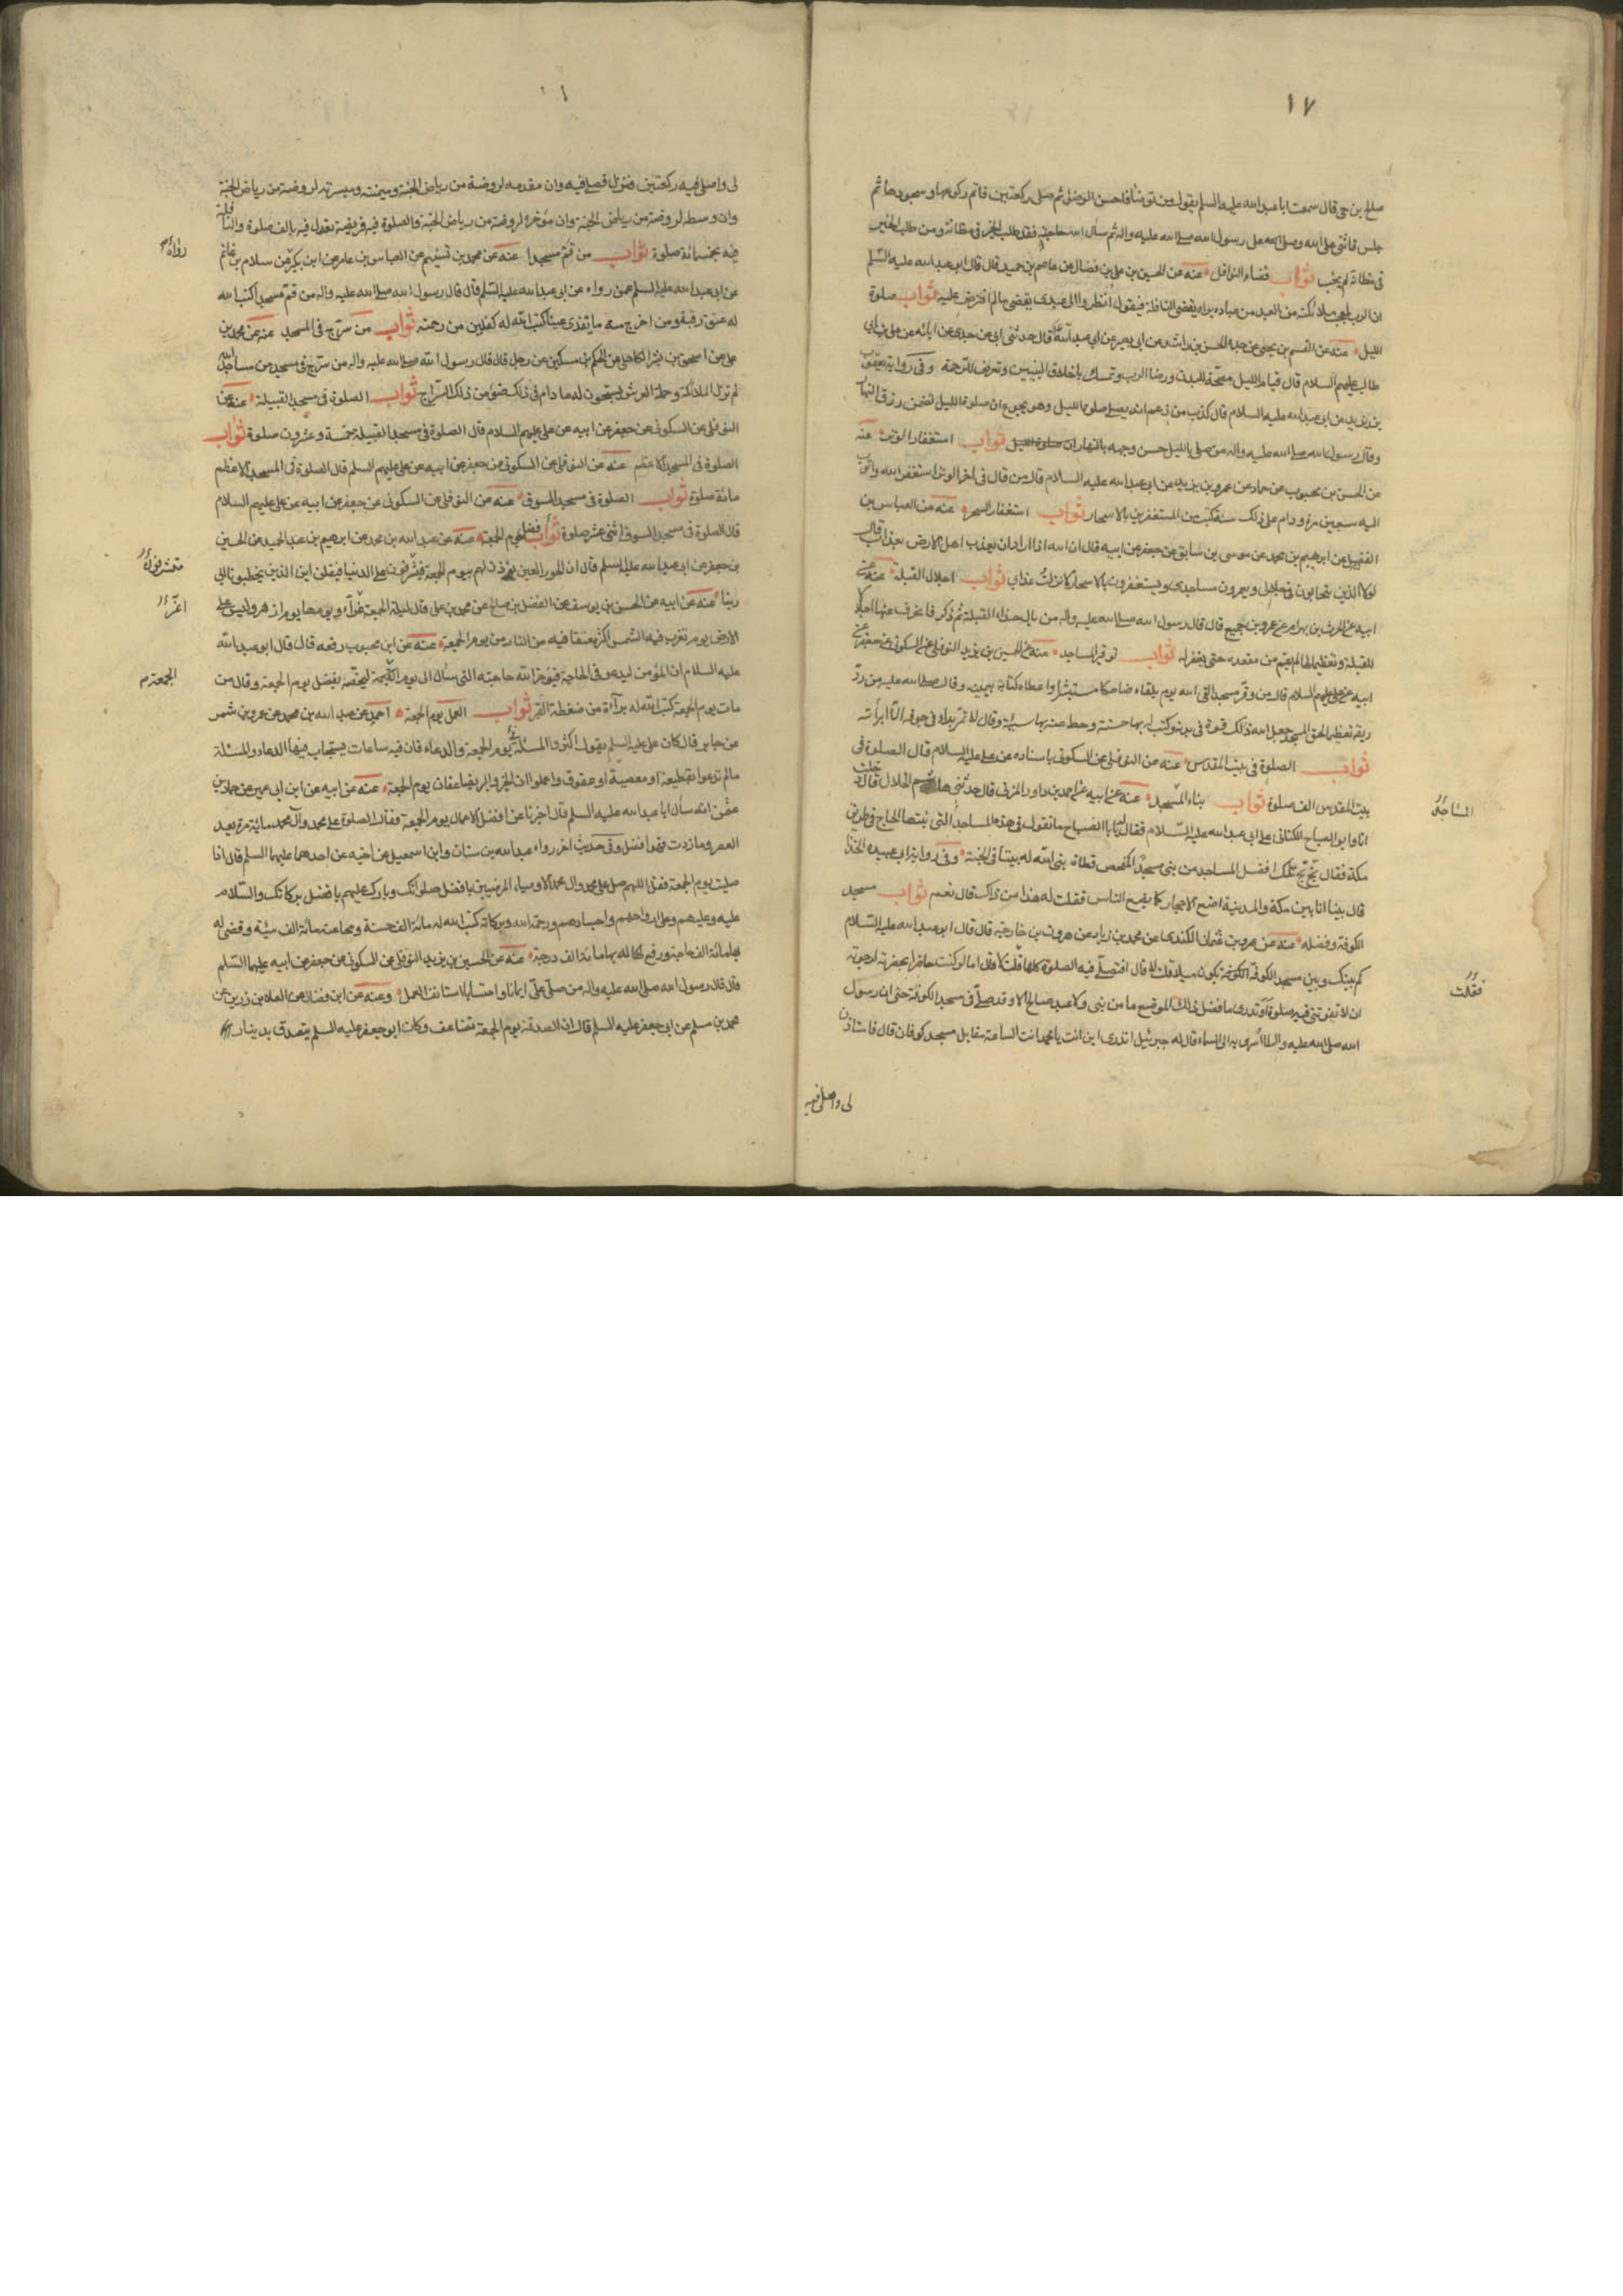 ١٧
صالح بن حي قال سمعت ابا عبد الله عليه السلم يقول من توضأ فاحسن الوضوء ثم صلى ركعتين فاتم ركوعهما وسجودهما ثم
جلس فاثنى على الله وصلى على رسول الله صلى الله عليه واله ثم سأل الله حاجته فقد طلب الخير في مظانه ومن طلب الخير
في مظانه لم يخب ثواب قضاء النوافل عنه عن الحسن بن علي بن فضال عن عاصم بن حميد قال قال ابو عبد الله عليه السلم
ان الرب ليعجب ملائكته من العبد من عباده يراه يقضى النافلة فيقول انظروا الى عبدى يقضى مالم افترض عليه ثواب صلوة
الليل عنه عن القسم بن يحيى عن جده الحسن بن راشد عن ابى بصير عن ابى عبد الله قال حدثنى ابى عن جدى عن ابائه عن علي بن ابى
طالب عليهم السلام قال قيام الليل مصحة للبدن ورضا الرب وتمسك باخلاق النبيين وتعرض للرحمة وفى رواية يعقوب
بن يزيد عن ابى عبد الله عليه السلام قال كذب من زعم انه يصلى صلوة الليل وهو يجوع ان صلوة الليل تضمن رزق النهار
وقال رسول الله صلى الله عليه واله من صلى بالليل حسن وجهه بالنهار ثواب استغفار الوتر عنه
عن الحسن بن محبوب عن حماد عن عمرو بن يزيد عن ابى عبد الله عليه السلام قال من قال فى اخر الوتر استغفر الله واتوب
اليه سبعين مرة ودام على ذلك سنة كتب من المستغفرين بالاسحار ثواب استغفار السحر عنه عن العباس بن
الفضيل عن ابرهيم بن محمد عن موسى بن سابق عن جعفر عن ابيه قال ان الله اذا اراد ان يعذب اهل الارض بعذاب قال
لولا الذين يتحابون فى جلالى ويعمرون مساجدى ويستغفرون بالاسحار لانزلت عذابى ثواب اجلال القبلة عنه عن
ابيه عن الحرث بن بهرام عن عمرو بن جميع قال قال رسول الله صلى الله عليه واله من بال حذاء القبلة ثم ذكر فانحرف عنها اجلالا
للقبلة وتعظيما لها لم يقم من مقعده حتى يغفر له ثواب توقير المساجد عنه عن الحسين بن يزيد النوفلى عن السكونى عن جعفر عن
ابيه عن على عليهم السلام قال من وقر مسجدا لقى الله يوم يلقاه ضاحكا مستبشرا واعطاه كتابه بيمينه وقال صلى الله عليه من رد
ريقه تعظيما لحق المسجد جعل الله ذلك قوة فى بدنه وكتب له بها حسنة وحط عنه بها سيئة وقال لا تمر بداء فى جوفه الا ابرأته
ثواب الصلوة فى بيت المقدس عنه عن النوفلى عن السكونى باسناده عن على عليه السلام قال الصلوة فى
بيت المقدس الف صلوة ثواب بناء المسجد عنه عن ابيه عن احمد بن داود المزنى قال حدثنى هاشم الحلال قال دخلت
انا وابو الصباح الكنانى على ابى عبد الله عليه السلام فقال له يا ابا الصباح ما تقول فى هذه المساجد التى بنتها الحاج فى طريق
مكة فقال بخ بخ تلك افضل المساجد من بنى مسجدا كمفحص قطاة بنى الله له بيتا فى الجنة وفى رواية ابى عبيدة الحذاء
قال بينا انا بين مكة والمدينة اضع الاحجار كما يضع الناس فقلت له هذا من ذاك قال نعم ثواب مسجد
الكوفة وفضله عنه عن عمرو بن عثمان الكندى عن محمد بن زياد عن هرون بن خارجة قال قال ابو عبد الله عليه السلام
كم بينك وبين مسجد الكوفة يكون ميلا قلت لا قال افتصلى فيه الصلوة كلها قلت لا قال اما لو كنت حاضرا بحضرته لرجوت
ان لا تفوتنى فيه صلوة اوتدرى ما فضل ذلك الموضع ما من نبى ولا عبد صالح الا وقد صلى فى مسجد الكوفة حتى ان رسول
الله صلى الله عليه واله لما اسرى به الى السماء قال له جبرئيل اتدرى اين انت يا محمد انت الساعة مقابل مسجد كوفان قال فاستاذن
المساجد
فقلت
لى واصلى فيه
لى واصلى فيه ركعتين فنزل فصلى فيه وان مقدمه لروضة من رياض الجنة وميمنته وميسرته لروضة من رياض الجنة
وان وسطه لروضة من رياض الجنة وان مؤخره لروضة من رياض الجنة والصلوة فيه فريضة تعدل فيه بالف صلوة والنافلة
فيه بخمسائة صلوة ثواب من قم مسجدا عنه عن محمد بن تسنيم عن العباس بن عامر عن ابن بكير عن سلام بن غانم
عن ابى عبد الله عليه السلم عمن رواه عن ابى عبد الله عليه السلم قال قال رسول الله صلى الله عليه واله من قم مسجدا كتب الله
له عتق رقبة ومن اخرج منه ما يقذى عينا كتب الله له كفلين من رحمته ثواب من سرج فى المسجد عنه عن محمد بن
على عن اسحق بن بشر الكاهلى عن الحكم بن مسكين عن رجل قال قال رسول الله صلى الله عليه واله من سرج فى مسجد من مساجد الله
لم تزل الملائكة وحملة العرش يستغفرون له ما دام فى ذلك ضوء من ذلك السراج ثواب الصلوة فى مسجد القبيلة عنه عن
النوفلى عن السكونى عن جعفر عن ابيه عن على عليهم السلام قال الصلوة فى مسجد القبيلة خمسة وعشرون صلوة ثواب
الصلوة فى المسجد الاعظم عنه عن النوفلى عن السكونى عن جعفر عن ابيه عن على عليهم السلم قال الصلوة فى المسجد الاعظم
مائة صلوة ثواب الصلوة فى مسجد السوق عنه عن النوفلى عن السكونى عن جعفر عن ابيه عن على عليهم السلام
قال الصلوة فى مسجد السوق اثنى عشر صلوة ثواب فضل يوم الجمعة عنه عن عبد الله بن محمد عن ابرهيم بن عبد الحميد عن الحسين
بن جعفر عن ابى عبد الله عليه السلم قال ان الحور العين يؤذن لهم بيوم الجمعة فيشرفون على الدنيا فيقلن اين الذين يخطبونا الى
ربنا عنه عن ابيه عن الحسن بن يوسف عن الفضل بن صالح عن محمد بن على قال ليلة الجمعة غراء ويومها يوم ازهر وليس على
الارض يوم تغرب فيه الشمس اكثر معتقا فيه من النار من يوم الجمعة عنه عن ابن محبوب رفعه قال قال ابو عبد الله
عليه السلام ان المؤمن ليدعو فى الحاجة فيؤخر الله حاجته التى سأل الى يوم القيمة ليخصه بفضل يوم الجمعة وقال من
مات يوم الجمعة كتب الله له براءة من ضغطة القبر ثواب العمل يوم الجمعة احمد عن عبد الله بن محمد عن عمرو بن شمر
عن جابر قال كان على عليه السلم يقول اكثروا المسئلة فى يوم الجمعة والدعاء فان فيه ساعات يستجاب فيها الدعاء والمسئلة
مالم تدعوا بقطيعة او معصية او عقوق واعلموا ان الخير والبر يضاعفان يوم الجمعة عنه عن ابيه عن ابن ابى عمير عن حماد بن
عثمن انه سأل ابا عبد الله عليه السلم قال اخبرنا عن افضل الاعمال يوم الجمعة فقال الصلوة على محمد وآل محمد مائة مرة بعد
العصر وما زدت فهو افضل وفى حديث اخر رواه عبد الله بن سنان وابن اسمعيل عن اخيه عن احدهما عليهما السلم قال اذا
صليت يوم الجمعة فقل اللهم صل على محمد وال محمد الاوصياء المرضيين بافضل صلواتك وبارك عليهم بافضل بركاتك والسلام
عليه وعليهم وعلى ارواحهم واجسادهم ورحمة الله وبركاته كتب الله له مائة الف حسنة ومحا عنه مائة الف سيئة وقضى له
بها مائة الف حاجة ورفع له بها مائة الف درجة عنه عن الحسين بن يزيد النوفلى عن السكونى عن جعفر عن ابيه عليهما السلم
قال قال رسول الله صلى الله عليه واله من صلى على ايمانا واحتسابا استانف العمل وعنه عن ابن فضال عن العلاء بن رزين عن
محمد بن مسلم عن ابى جعفر عليه السلم قال ان الصدقة يوم الجمعة تضاعف وكان ابو جعفر عليه السلم يتصدق بدينار
رواه
اغر
الجمعة